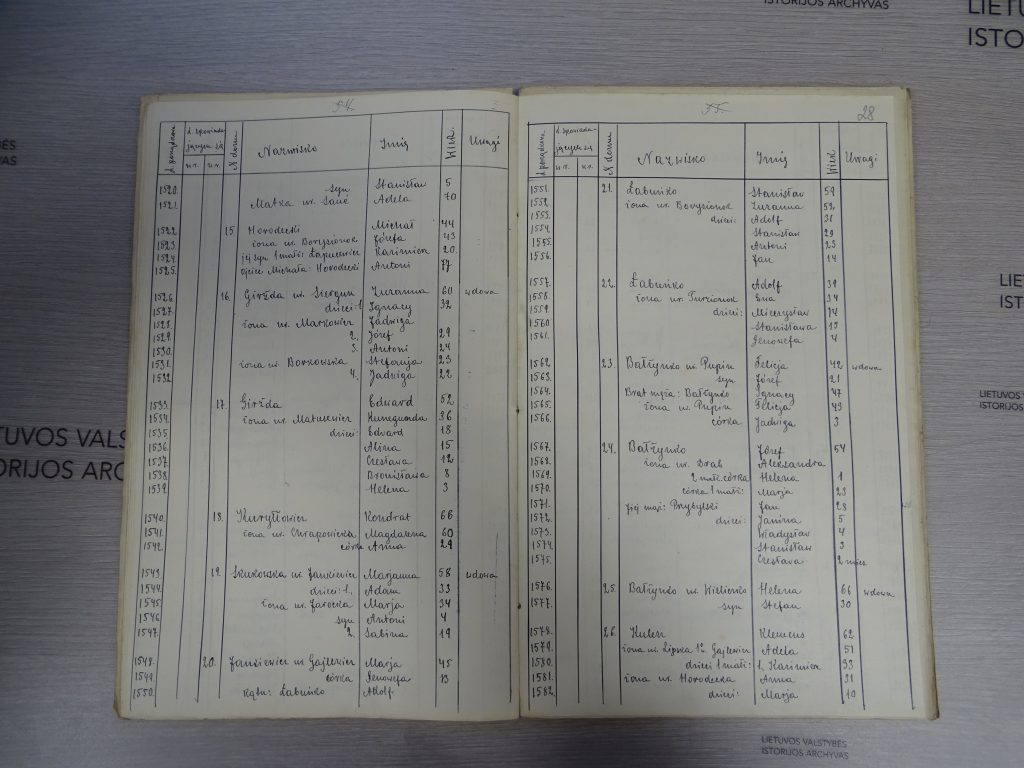 ISTORIJOS ARCHYVAS
LIETU
ISTO
BĖS
VAS
LIETU
ISTO
LIETUVOS VALSTY
ISTORIJOS ARCH
ETUVOS VALST
ORIJOS ARCH
LIETUVOS VALSTYBĖS
ISTORIJOS ARCHYVAS
54.
L. porządkowa
L. spowiada-
jących się
N domu
Nazwisko
Imię
Wiek
Uwagi
1520. syn Stanisław 5
1521. Matka ur. Adela 70
1522. 15 Horodecki Michał 44
1523. żona ur. Borysionok Józefa 43
1524. jej syn 1 małż: Łapucewicz Kazimierz 20.
1525. ojciec Michała: Horodecki Antoni 77
1526. 16. Girżda ur. Siergun Zuzanna 60 wdowa
1527. dzieci: 1. Ignacy 32
1528. żona ur. Markowicz Jadwiga
1529. 2. Józef 29
1530. 3. Antoni 24
1531. żona ur. Borkowska Stefanija 23
1532 4. Jadwiga 22
1533. 17. Girżda Edward 52
1534. żona ur. Matusewicz Kunegunda 36
1535. dzieci: Edward 18
1536. Alina 15
1537. Czesława 12
1538. Bronisława 8
1539. Helena 3
1540. 18. Kuryłowicz Kondrat 66
1541. żona ur. Chrapowicka Magdalena 60
1542. córka Anna 29
1543. 19. Skukowska ur. Jankiewicz Marjanna 58 wdowa
1544. dzieci: 1. Adam 33
1545. żona ur. Marja 34
1546 syn Antoni 4
1547. 2. Sabina 19
1548. 20. Jankiewicz ur. Gajlewicz Marja 45
1549. córka Genowefa 13
1550. kątn: Łabuńko Adolf
55.
28
L. porządkowa
L. spowiada-
jących się
N domu
Nazwisko
Imię
Wiek
Uwagi
1551. 21. Łabuńko Stanisław 59
1552. żona ur. Borysionok Zuzanna 52
1553. dzieci: Adolf 31
1554. Stanisław 29
1555. Antoni 23
1556. Jan 14
1557. 22. Łabuńko Adolf 39
1558. żona ur. Turzionok Ewa 34
1559. dzieci: Mieczysław 14
1560 Stanisława 15
1561. Genowefa 4
1562 23. Bałtynko ur. Pupin Felicja 42 wdowa
1563. syn Józef 21
1564. Brat męża: Bałtynko Ignacy 47
1565. żona ur. Pupin Felicja 43
1566. córka Jadwiga 3
1567. 24. Bałtynko Józef 54
1568. żona ur. Drab Aleksandra
1569. 2 małż. córka Helena 1
1570. córka 1 małż: Marja 23
1571. Jej mąż: Przybylski Jan 28
1572. dzieci: Janina 5
1573. Władysław 4
1574. Stanisław 3
1575. Czesława 2 mies
1576. 25. Bałtynko ur. Helena 66 wdowa
1577. syn Stefan 30
1578. 26. Kulesz Klemens 62
1579. żona ur. Lipska 1º Gajlewicz Adela 57
1580. dzieci 1 małż: 1. Kazimierz 33
1581. żona ur. Horodecka Anna 31
1582 dzieci: Marja 10
LIETUVOS VALSTYBĖS
ISTORIJOS ARCHYVAS